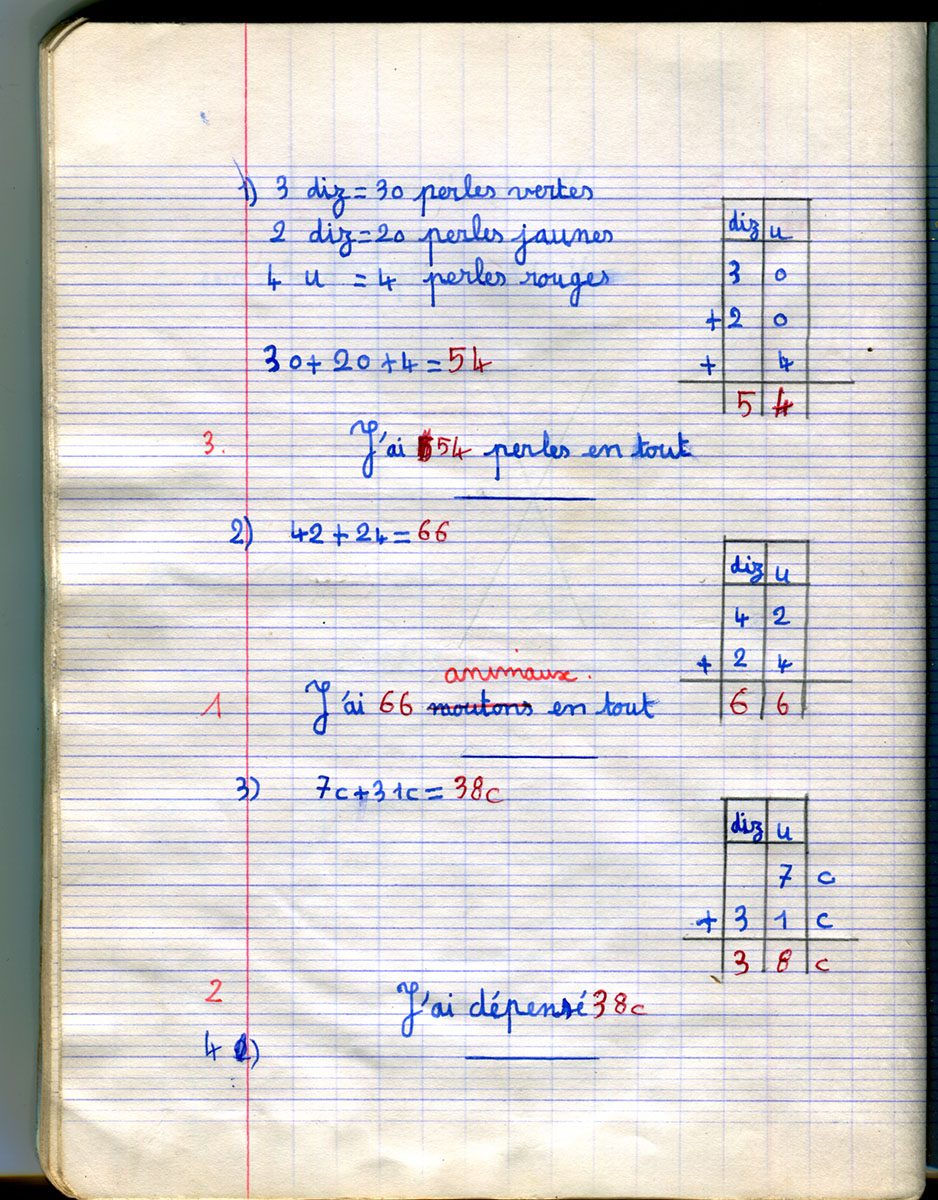 1) 3 diz = 30 perles vertes
2 diz = 20 perles jaunes
4 u = 4 perles rouges
30 + 20 + 4 = 54
diz u
3 0
+ 2 0
+ 4
5 4
3. J'ai 54 perles en tout
2) 42 + 24 = 66
diz u
4 2
+ 2 4
6 6
animaux.
1 J'ai 66 moutons en tout
3) 7c + 31c = 38c
diz u
7 c
+ 3 1 c
3 8 c
2 J'ai dépensé 38c
4)